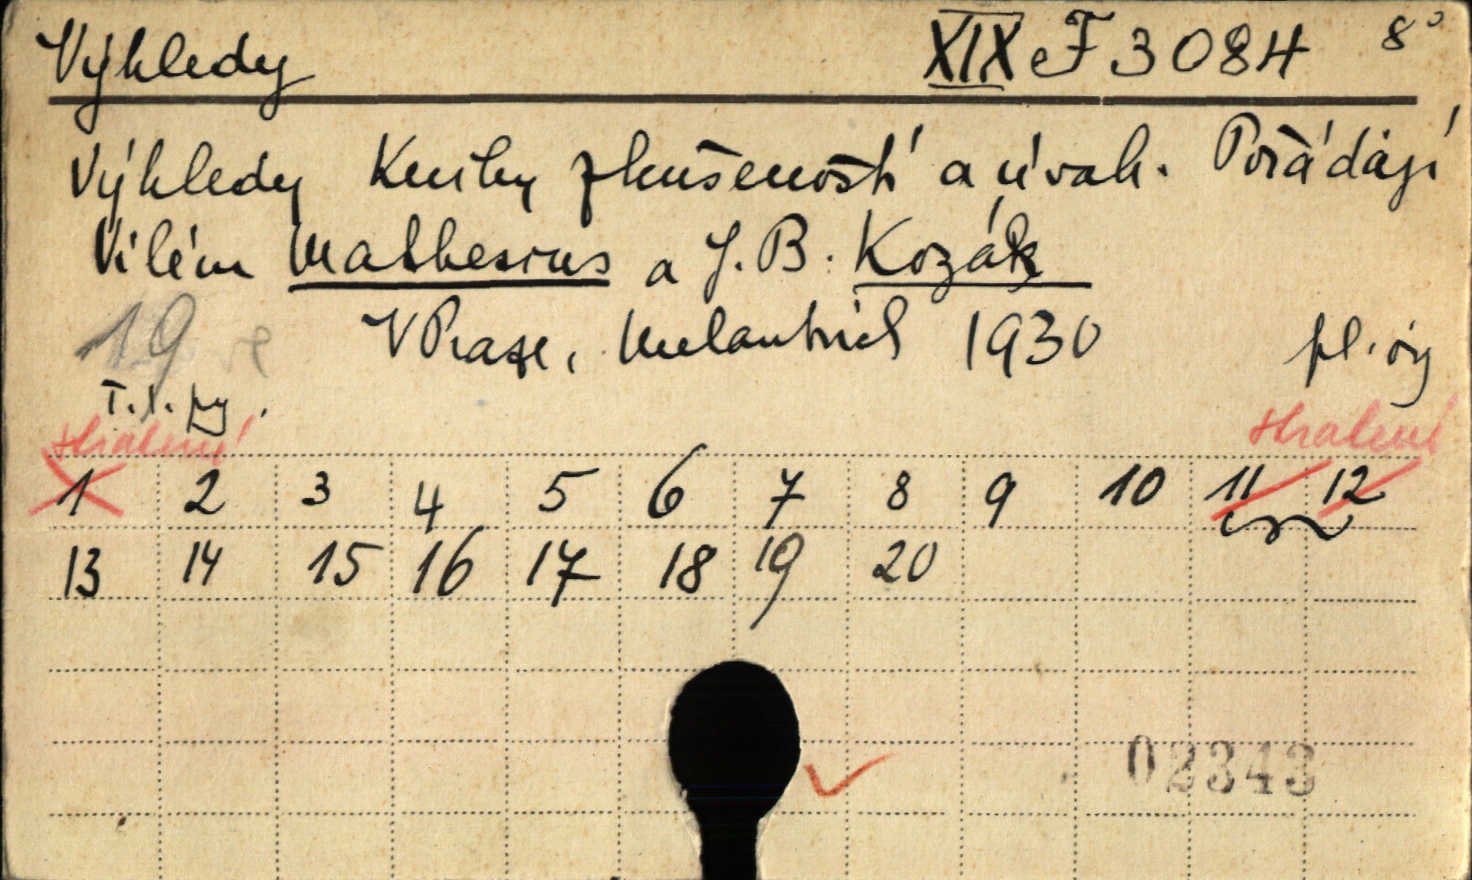 Výhledy XIX e F 3084 8°
Výhledy Knihy zkušeností a úvah. Pořádají
Vilém Mathesius a J. B. Kozák
V Praze, Melantrich 1930
19
ztracený ztracené
1 2 3 4 5 6 7 8 9 10 11 12
13 14 15 16 17 18 19 20
02343